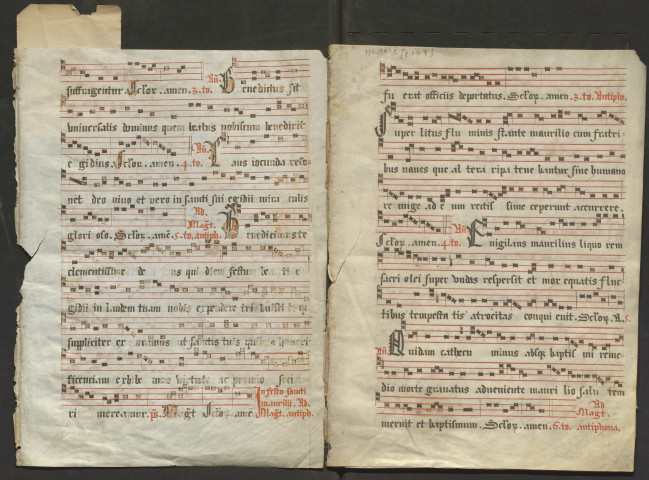 suffragentur. Seculorum. amen. 3. to. An. Benedictus sit
vniuersalis dominus quem beatus nobiscum benedixit
egidius. Seclor. amen. 4. to. An. Laus iocunda reso-
net deo uiuo et vero in sancti sui egidii mira culis
glori oso. Seclor. amē. 5. to. antiph. Ad Magt. Benedicimus te
clementissime de us qui diem festum bea ti e
gidii in laudem tuam nobis
suppliciter ex oramus ut sanctis tuis
ficenciam exhibe mus
ri mereamur. ps. Magt Seclor. amē. In festo sancti maurilii. Ad. Magt. antiph.
fu erat officiis deportatus. Seclor. amen. 3. to. Antipho.
Super litus flu minis stante maurilio cum fratri-
bus naues que al tera ripa tene bantur sine humano
re mige ad e um rectis sime ceperunt accurrere.
Seclor. amen. 4. to. An. Enigilans maurilius liquo rem
sacri olei super vndas respersit et mox equatis fluc
tibus tempesta tis atrocitas conqui euit. Seclor. A. 5.
An. Quidam cathecu minus absque baptis mi reme-
dio morte grauatus adueniente mauri lio salu tem
meruit et baptismum. Seclor. amen. 6. to. Ad Magt. antiphona.